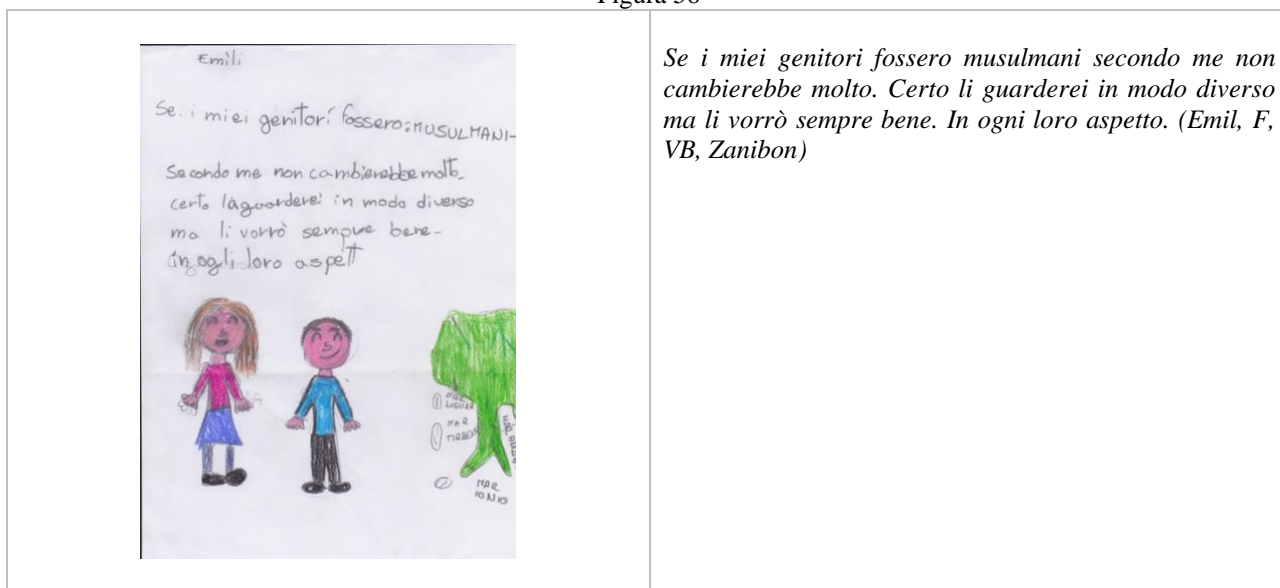 Emili
Se i miei genitori fossero: MUSULMANI-
Secondo me non cambierebbe molto-
certo laguarderei in modo diverso
ma li vorrò sempre bene-
in ogli loro aspett
MAR
LIGURE
MAR
MAR
IONIO
Se i miei genitori fossero musulmani secondo me non
cambierebbe molto. Certo li guarderei in modo diverso
ma li vorrò sempre bene. In ogni loro aspetto. (Emil, F,
VB, Zanibon)